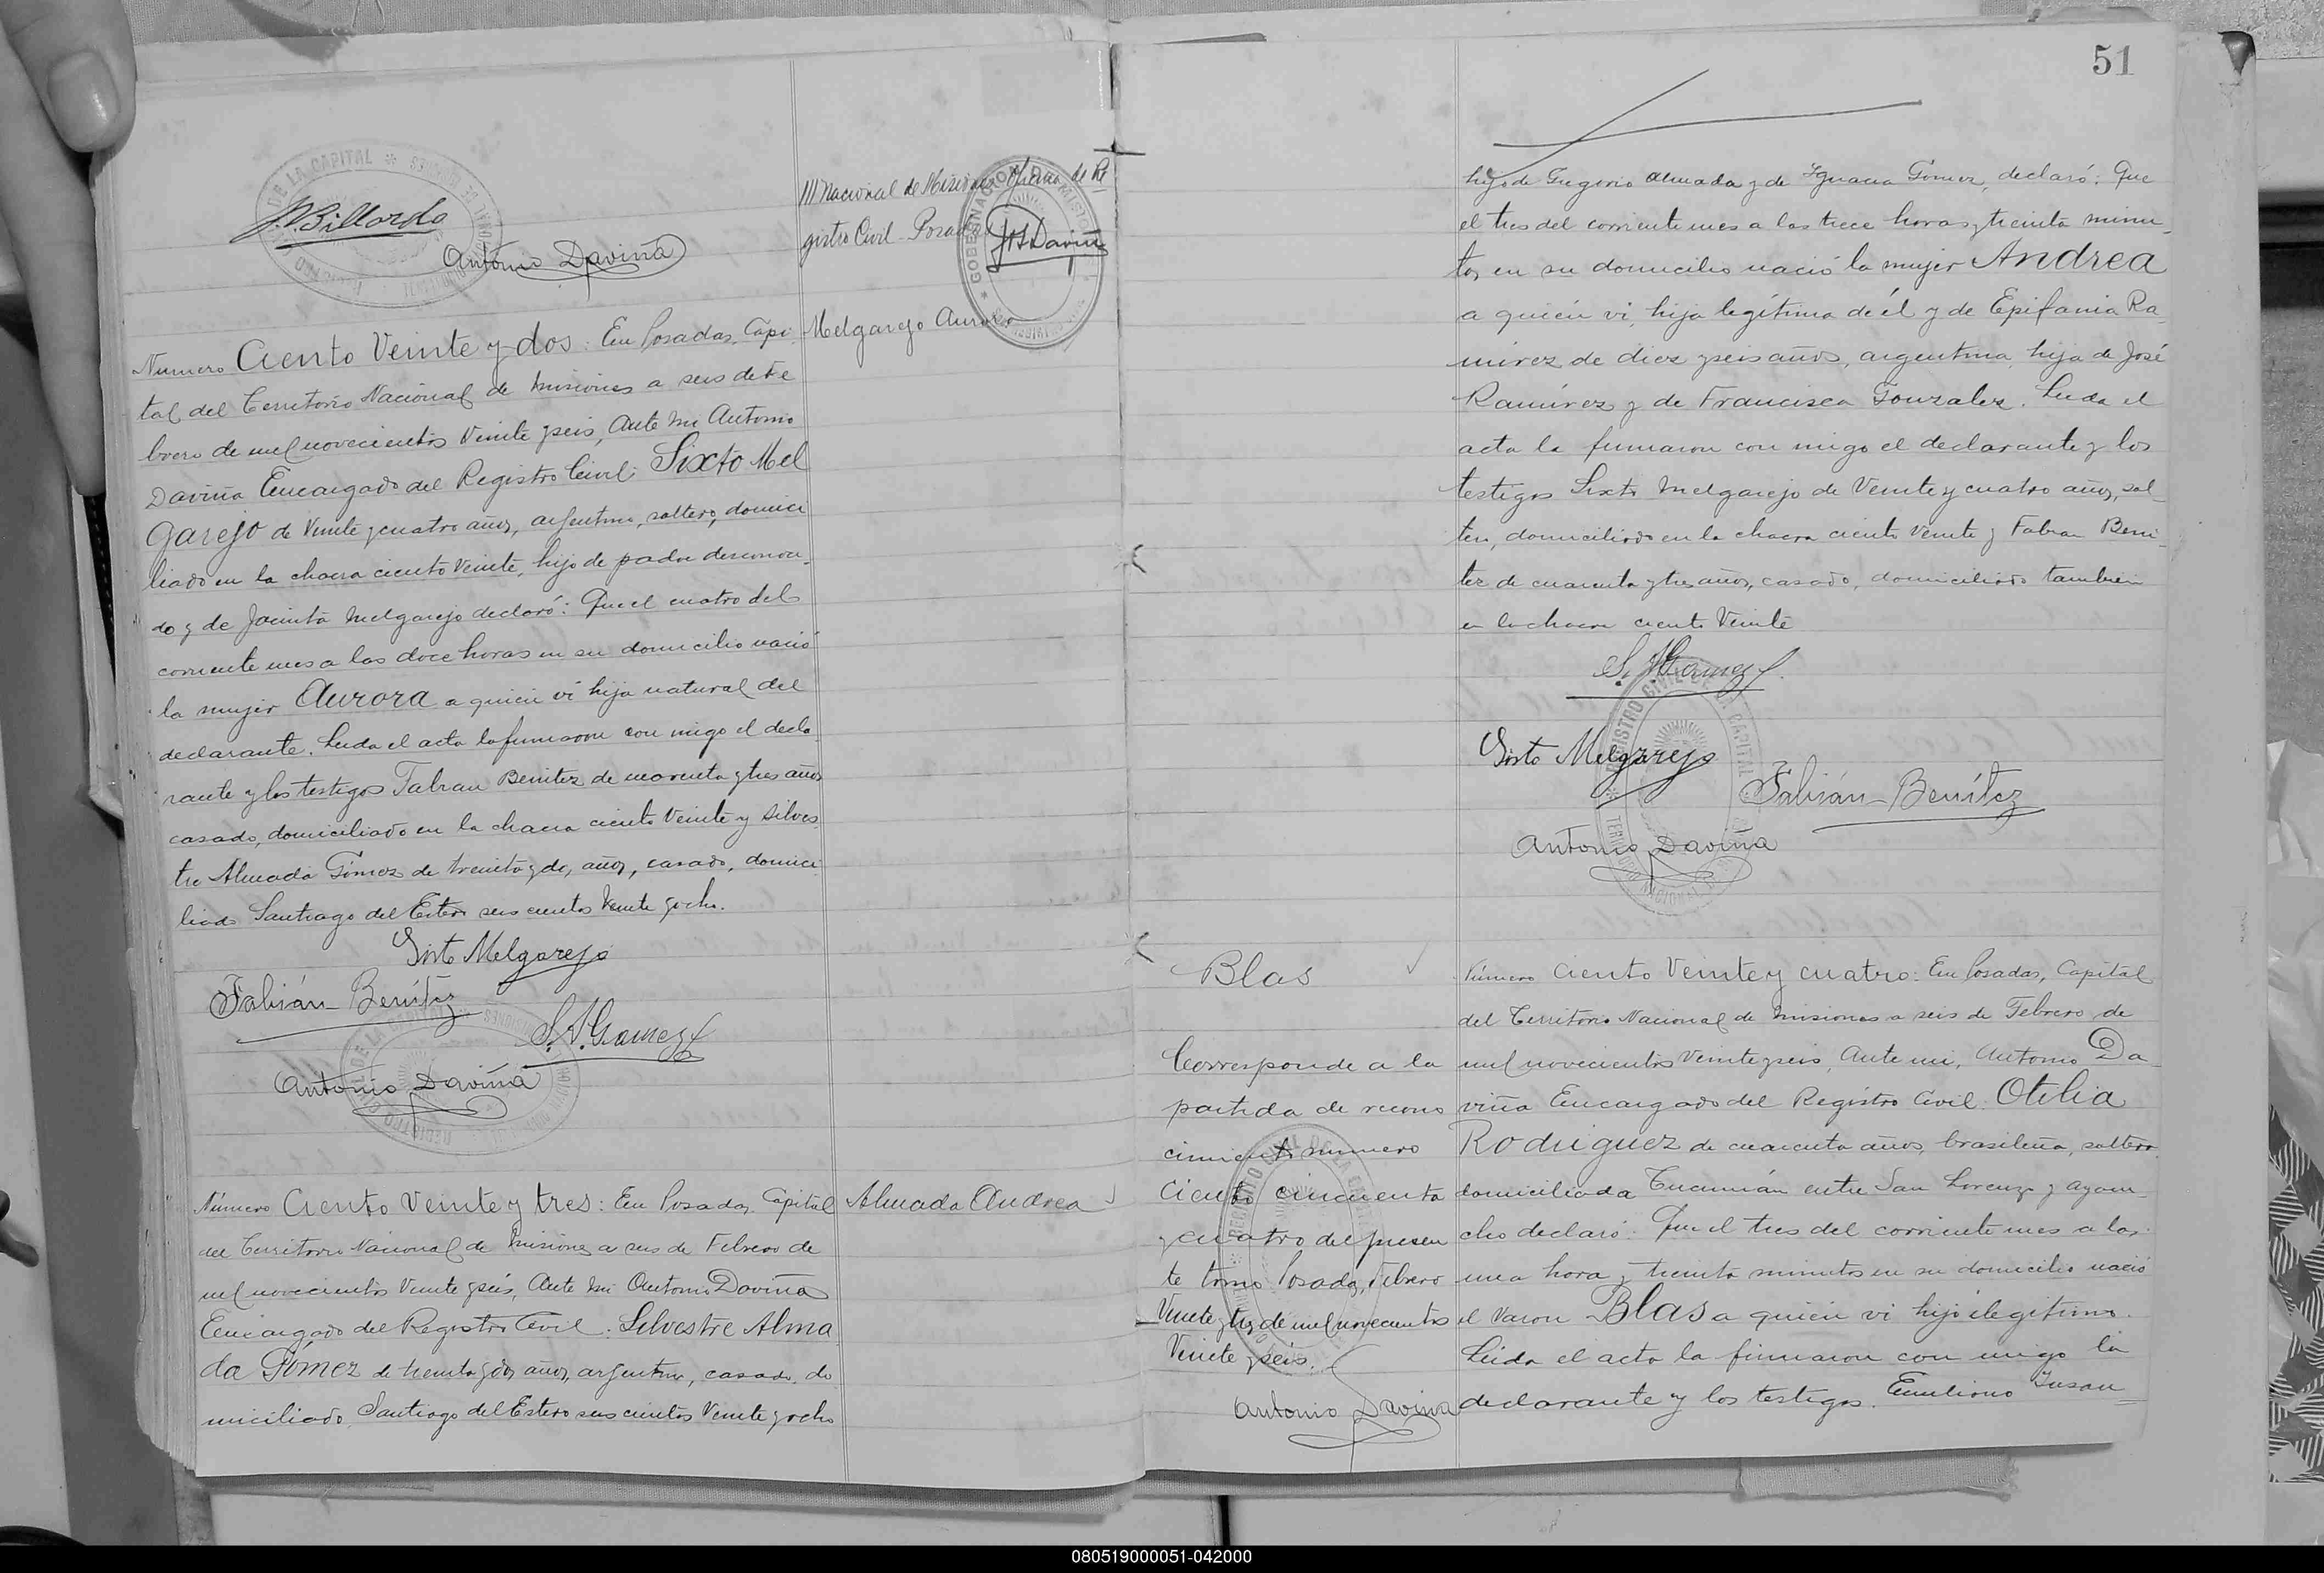 J. V. Billordo
Antonio Daviña
Número Ciento Veinte y dos: En Posadas, Capi
tal del Territorio Nacional de Misiones a seis de Fe
brero de mil novecientos Veinte y seis, Ante mi Antonio
Daviña Encargado del Registro Civil: Sixto Mel
garejo de Veinte y cuatro años, argentino, soltero, domici
liado en la chacra ciento Veinte, hijo de padre desconoci
do y de Jacinta Melgarejo declaró: Que el cuatro del
corriente mes a las doce horas en su domicilio nació
la mujer Aurora a quien vi hija natural del
declarante. Leida el acta la firmaron con migo el decla
rante y los testigos Fabian Benitez de cuarenta y tres años
casado, domiciliado en la chacra ciento Veinte y Silves
tre Almada Gómez de treinta y dos años, casado, domici
liado Santiago del Estero seis cientos Veinte y ocho.
Sisto Melgarejo
Fabián Benítez
S. A. Gomez
Antonio Daviña
Número Ciento Veinte y tres: En Posadas, Capital
del Territorio Nacional de Misiones a seis de Febrero de
mil novecientos Veinte y seis, Ante mi Antonio Daviña
Encargado del Registro Civil: Silvestre Alma
da Gómez de treinta y dos años, argentino, casado, do
miciliado, Santiago del Estero seis cientos Veinte y ocho
Nacional de Misiones Oficina de Re
gistro Civil Posadas
Daviña
Melgarejo Aurora
Almada Andrea
51
hijo de Gregorio Almada y de Ignacia Gómez, declaró: Que
el tres del corriente mes a las trece horas y treinta minu
tos, en su domicilio nació la mujer Andrea
a quien vi, hija legítima de él y de Epifania Ra
mírez de diez y seis años, argentina, hija de José
Ramírez y de Francisca Gonzalez. Leida el
acta la firmaron con migo el declarante y los
testigos Sixto Melgarejo de Veinte y cuatro años, sol
tero, domiciliado en la chacra ciento Veinte y Fabian Beni
tez de cuarenta y tres años, casado, domiciliado tambien
en la chacra ciento Veinte
S. A. Gomez
Sisto Melgarejo
Fabián Benítez
Antonio Daviña
Blas
Corresponde a la
partida de recono
cimiento número
Ciento cincuenta
y cuatro del presen
te tomo Posadas, Febrero
Veinte y tres de mil novecientos
Veinte y seis.
Antonio Daviña
Número Ciento Veinte y cuatro: En Posadas, Capital
del Territorio Nacional de Misiones a seis de Febrero de
mil novecientos Veinte y seis, Ante mi, Antonio Da
viña Encargado del Registro Civil: Otilia
Rodriguez de cuarenta años, brasileña, soltera
domiciliada Tucumán entre San Lorenzo y ayacu
cho declaró: Que el tres del corriente mes a las
una hora y treinta minutos en su domicilio nació
el Varon Blas a quien vi hijo ilegitimo.
Leida el acta la firmaron con migo la
declarante y los testigos. Emiliano
080519000051-042000